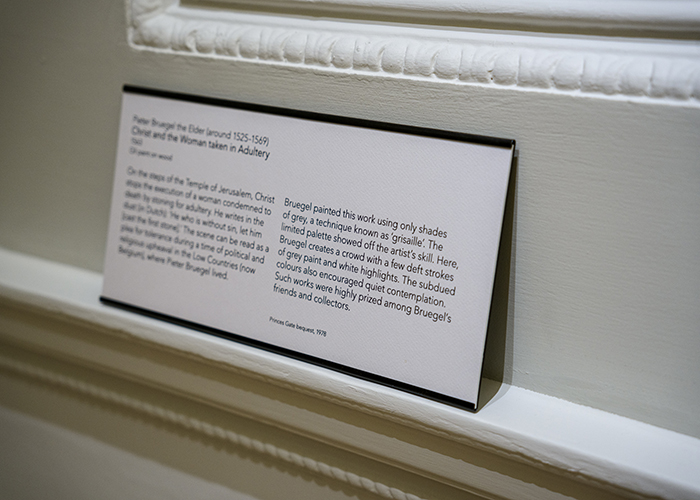 Pieter Bruegel the Elder (around 1525-1569)
Christ and the Woman taken in Adultery
Oil paint on wood
On the steps of the Temple of Jerusalem, Christ
stops the execution of a woman condemned to
death by stoning for adultery. He writes in the
dust (in Dutch): 'He who is without sin, let him
[cast the first stone].' The scene can be read as a
plea for tolerance during a time of political and
religious upheaval in the Low Countries (now
Belgium), where Pieter Bruegel lived.
Bruegel painted this work using only shades
of grey, a technique known as 'grisaille'. The
limited palette showed off the artist's skill. Here,
Bruegel creates a crowd with a few deft strokes
of grey paint and white highlights. The subdued
colours also encouraged quiet contemplation.
Such works were highly prized among Bruegel's
friends and collectors.
Princes Gate bequest, 1978